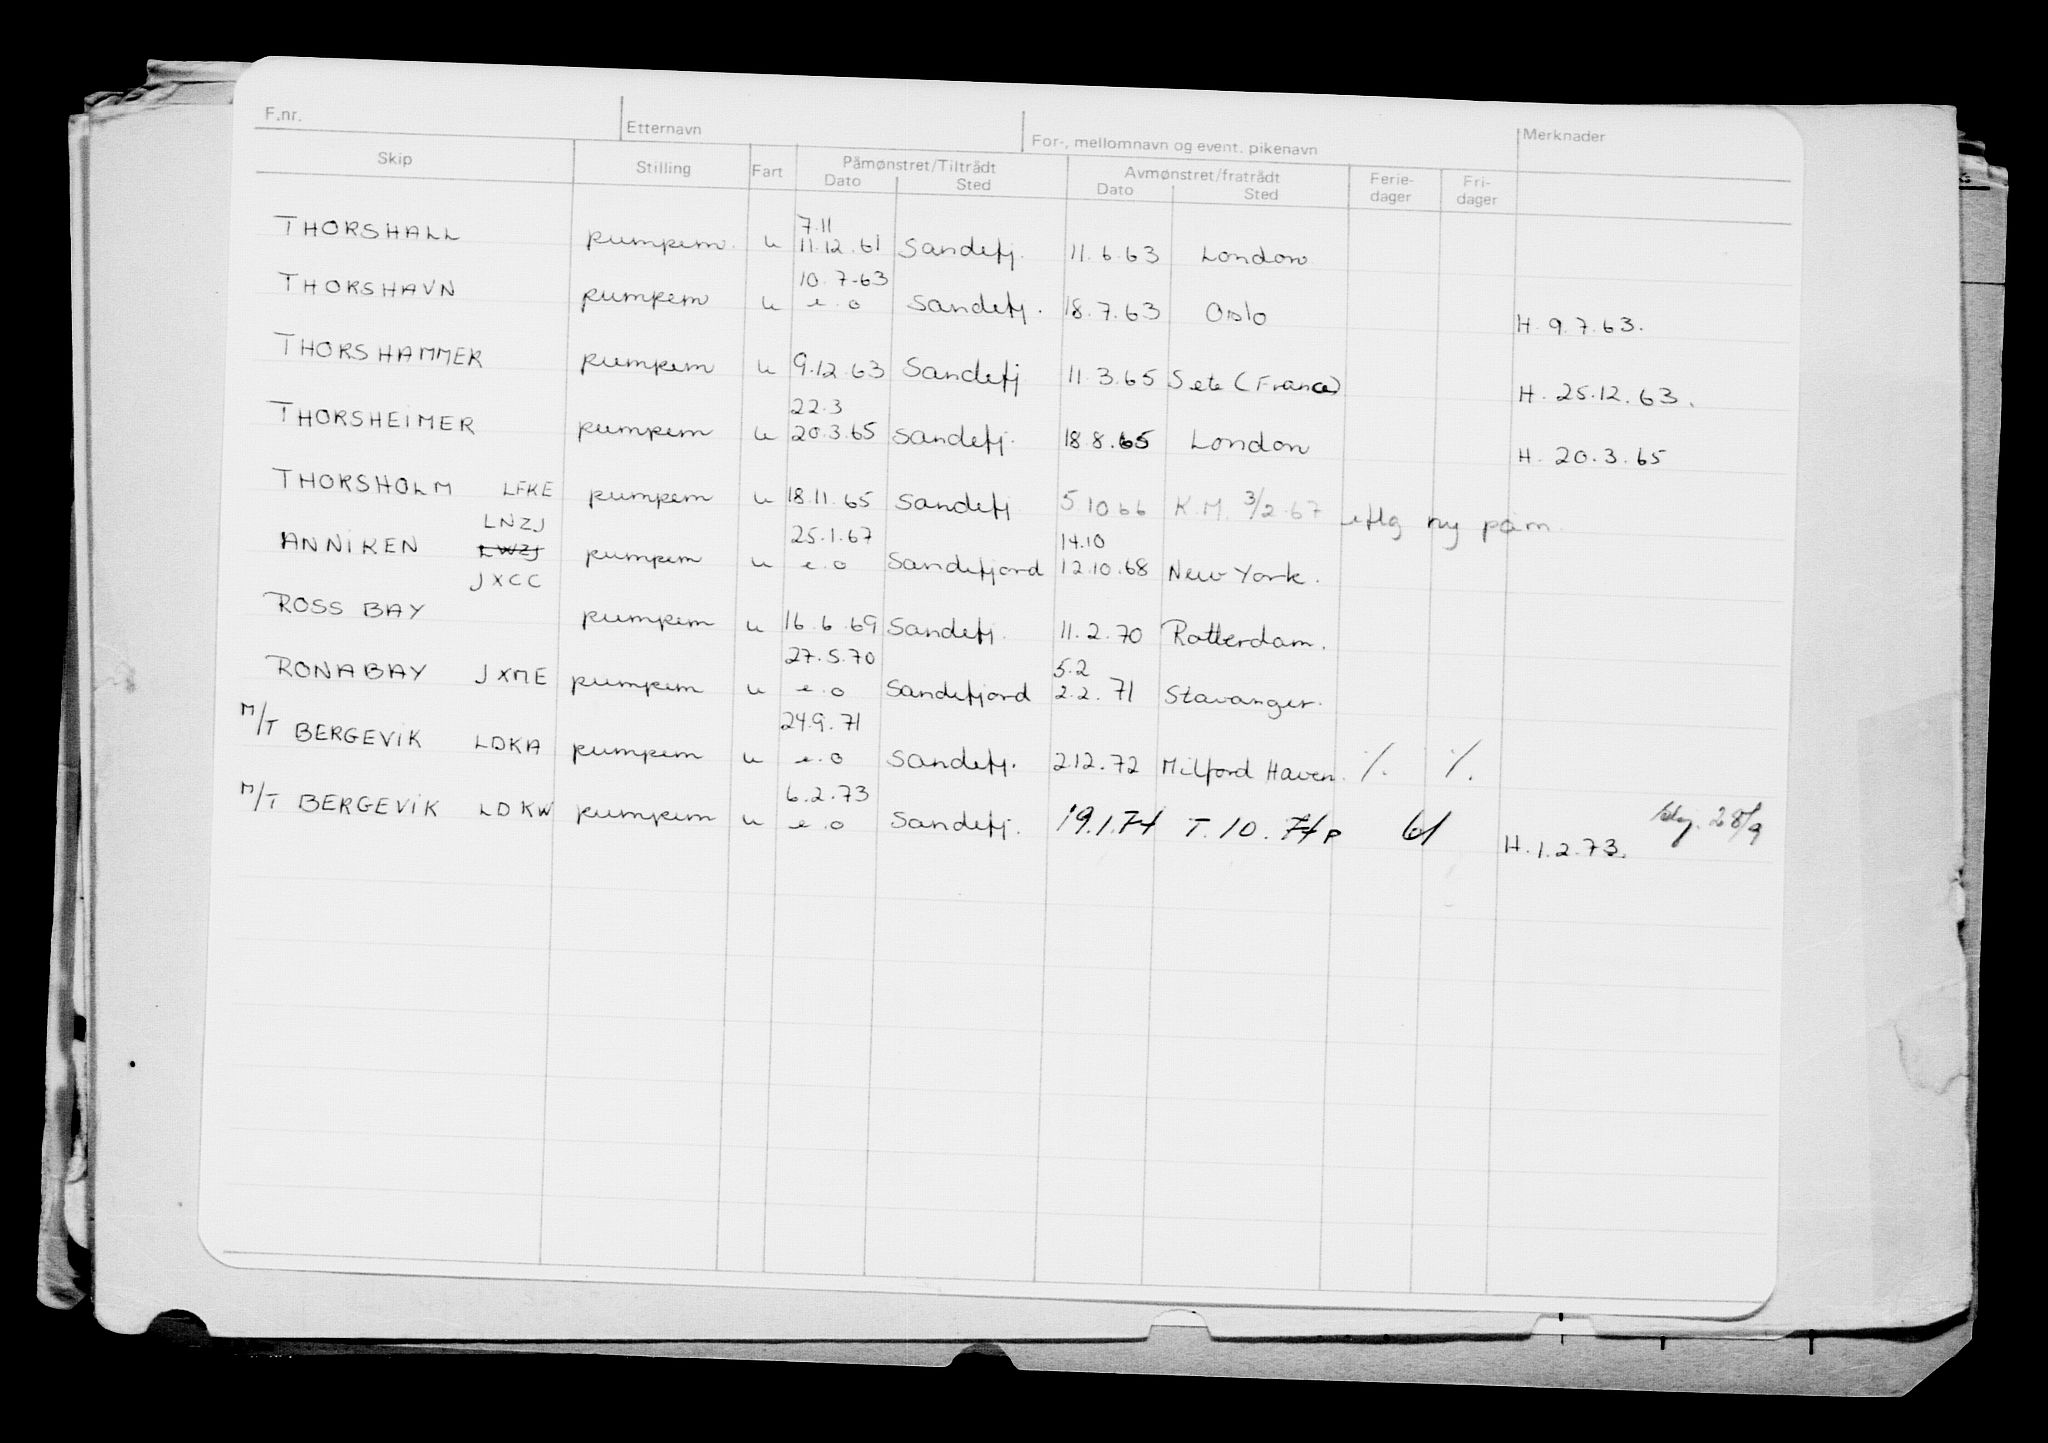 F.nr. Etternavn For-, mellomnavn og event. pikenavn Merknader
Skip Stilling Fart Påmønstret/Tiltrådt Avmønstret/fratrådt Ferie- Fri-
Dato Sted Dato Sted dager dager
7.11
THORSHALL pumpem. u 11.12.61 Sandefj. 11.6.63 London
10.7-63
THORSHAVN pumpem u e.o Sandefj. 18.7.63 Oslo H. 9.7.63.
THORSHAMMER pumpem u 9.12.63 Sandefj 11.3.65 Sete (France) H. 25.12.63.
22.3
THORSHEIMER pumpem u 20.3.65 Sandefj. 18.8.65 London H. 20.3.65
THORSHOLM LFKE pumpem u 18.11.65 Sandefj 5.10 66 K.M. 3/2-67 ny påm.
LNZJ 25.1.67 14.10
ANNIKEN LWZJ pumpem u e.o Sandefjord 12.10.68 New York.
JXCC
ROSS BAY pumpem u 16.6.69 Sandefj. 11.2.70 Rotterdam.
27.5.70 5.2
RONABAY JXME pumpem u e.o Sandefjord 2.2.71 Stavanger.
24.9.71
M/T BERGEVIK LDKA pumpem u e.o Sandefj. 212.72 Milford Haven. ·/. ·/.
6.2.73
M/T BERGEVIK LDKW pumpem u e.o Sandefj. 19.1.74 T.10.74P 61 H.1.2.73. 28/9